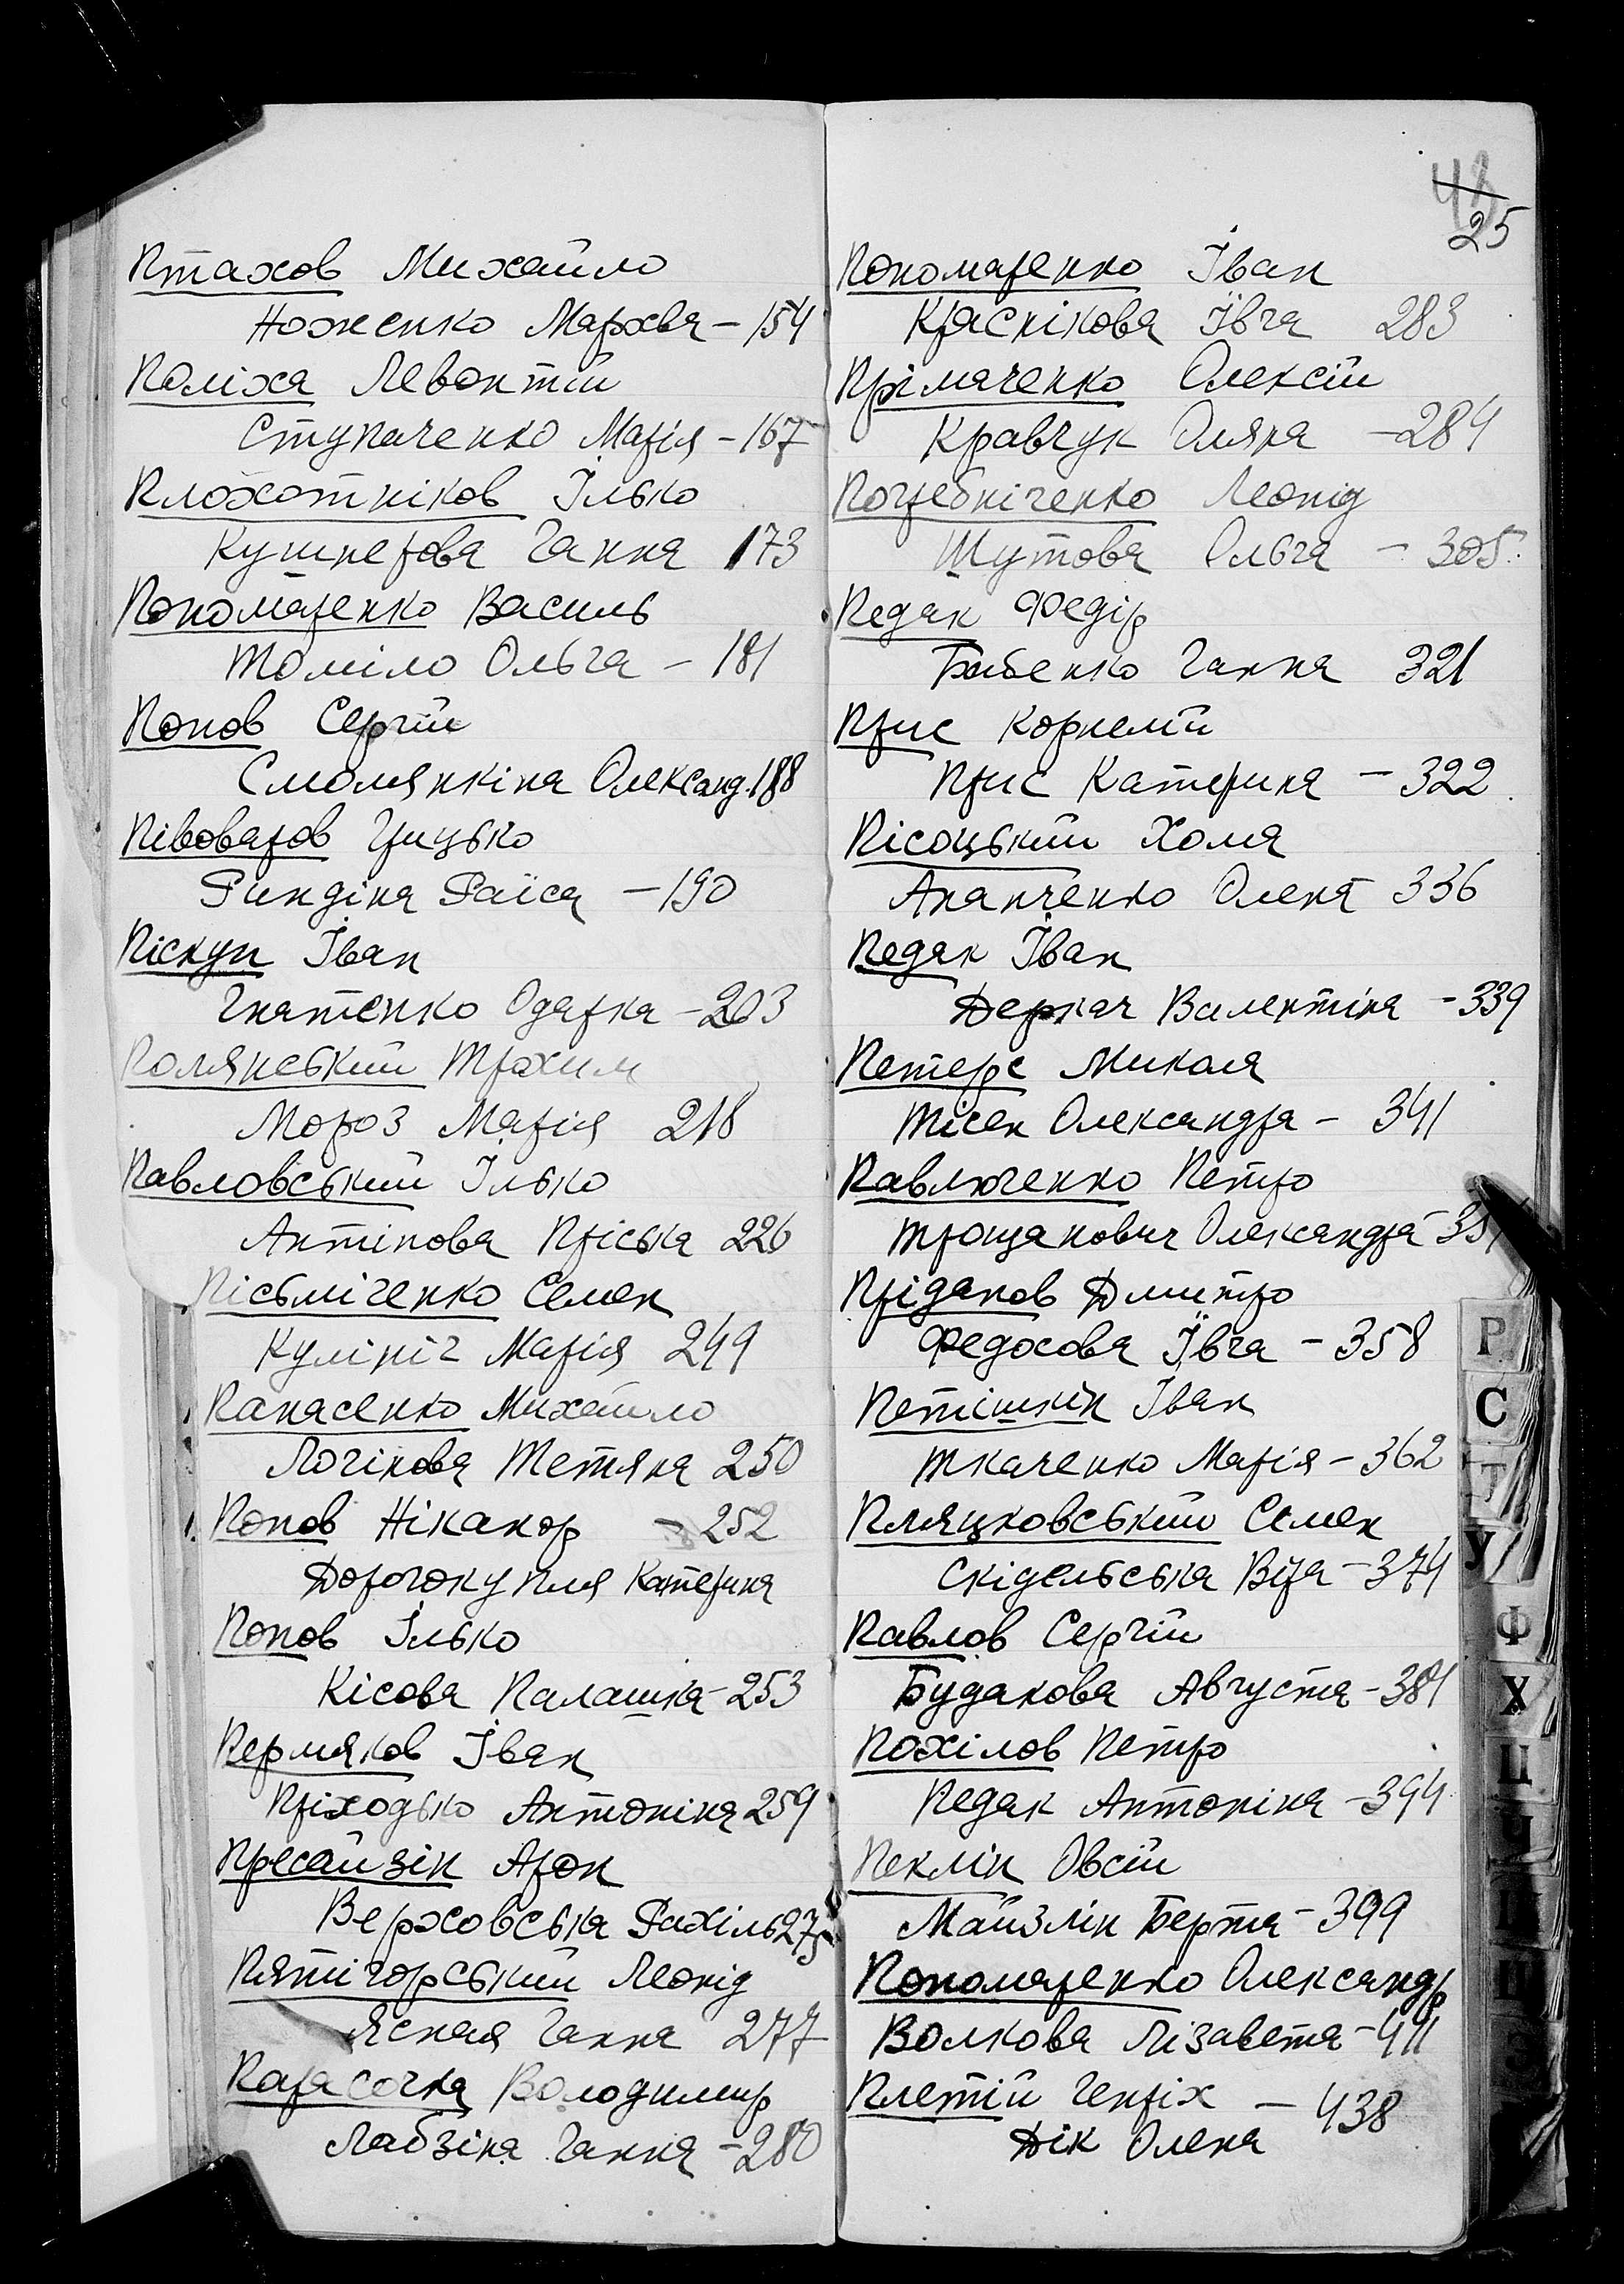 Птахов Михайло
Ноженко Мархва – 154
Поліха Левонтій
Ступаченко Марія – 167
Плохотніков Ілько
Кушнерова Ганна 173
Пономаренко Василь
Томіло Ольга – 181
Попов Сергій
Смолянкіна Олександ. 188
Півоваров Грицько
Риндіна Раїса – 190
Піскун Іван
Гнатенко Одарка – 203
Полянський Трохим
Мороз Марія 218
Павловський Ілько
Антіпова Пріська 226
Пісьміченко Семен
Кулініч Марія 249
Панасенко Михайло
Логінова Тетяна 250
ПоповНіканор – 252
Дорогокупля Катерина
Попов Ілько
Кісова Палашка – 253
Пермяков Іван
Пріходько Антоніна 259
Пресайзін Арон
Верховська Рахіль 275
Пятігорський Леонід
Ясная Ганна 277
Парасочка Володимир
Лабзіна Ганна – 280
42
25
Пономаренко Іван
Краснікова Івга 283
Прімаченко Олексій
Кравчук Оляна – 284
Погребніченко Леонід
Шутова Ольга – 305.
Педак Федір
Бабенко Ганна 321
Прис Корнелій
Прис Катерина – 322
Пісоцький Хома
Ананченко Олена 336
Педак Іван
Деркач Валентіна – 339
Петерс Микола
Тісен Олександра – 341
Павлюченко Петро
Трощанович Олександра
Пріданов Дмитро
Федосова Івга – 358
Петішкін Іван
Ткаченко Марія – 362
Пляцковський Семен
Скідельська Віра – 374
Павлов Сергій
Будакова Августа – 381
Похілов Петро
Педак Антоніна – 394
Пеклін Овсій
Майзлін Берта – 399
Пономаренко Олександр
Волкова Лізавета – 411
Плетій Генріх – 438
Дік Олена
Р
С
Т
У
Ф
Х
Ц
Ч